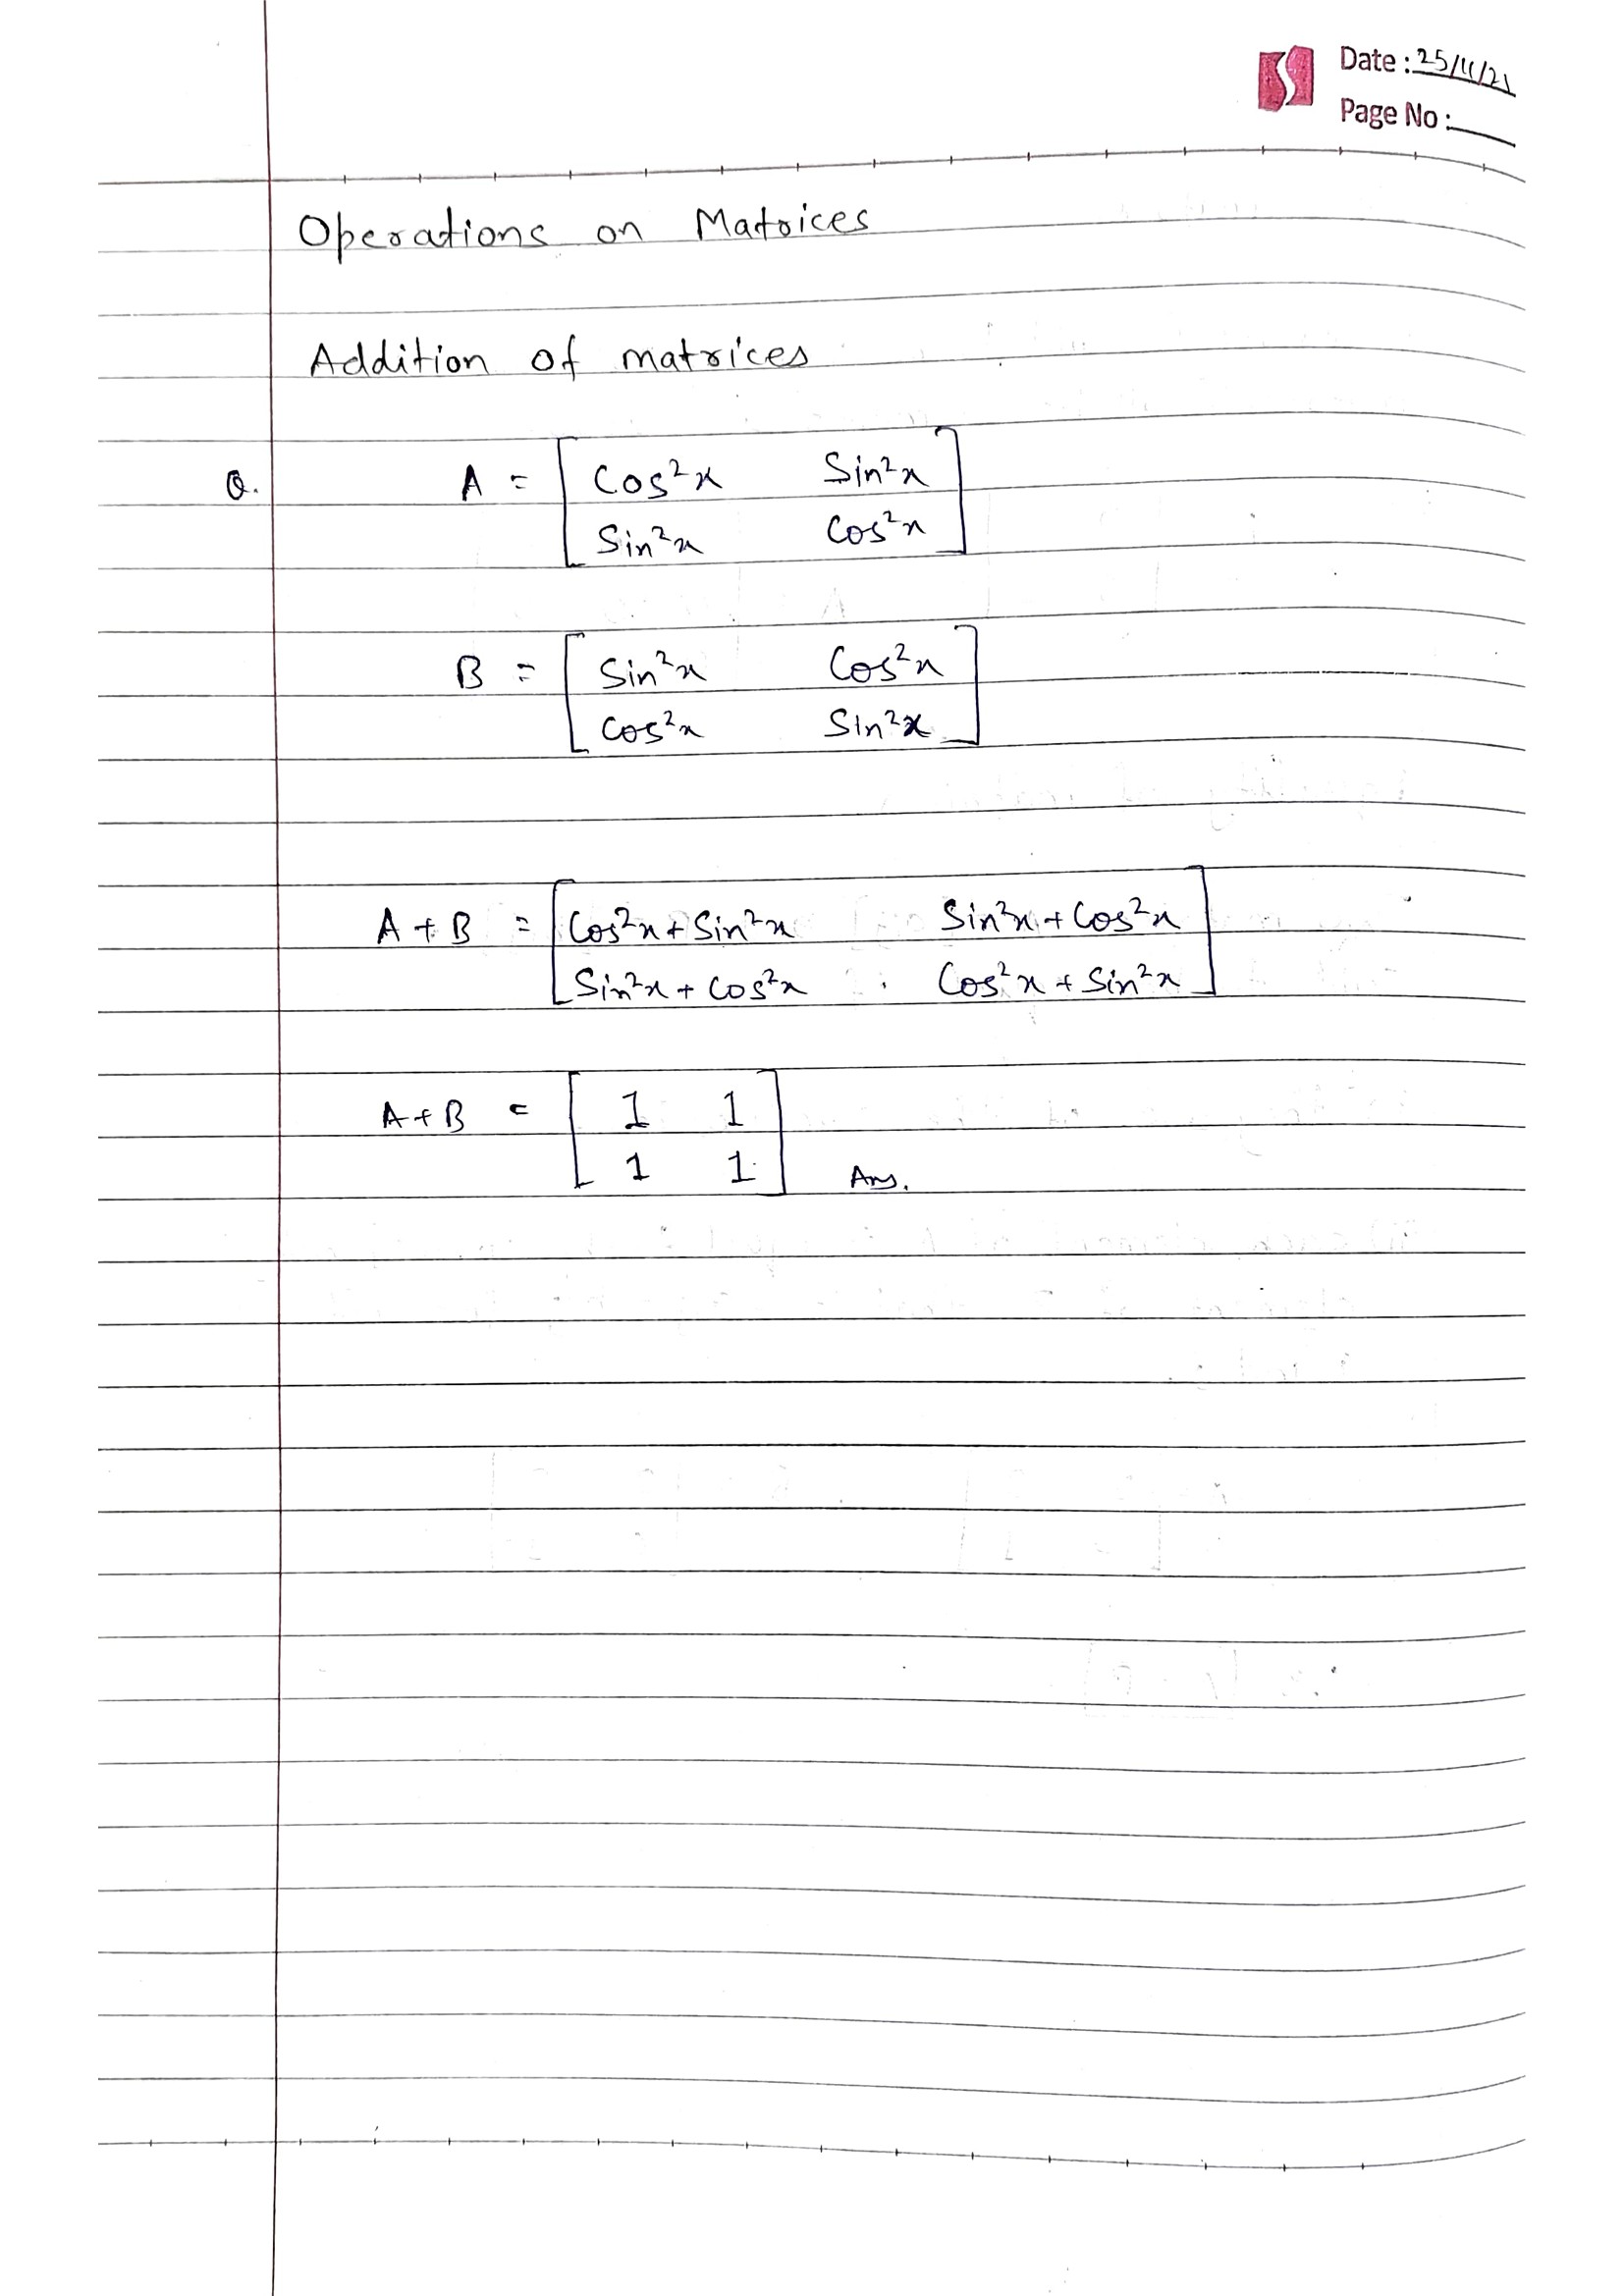 Date : 25/11/21
Page No :
Operations on Matrices
Addition of matrices
Q. A = [ Cos²x Sin²x
Sin²x Cos²x ]
B = [ Sin²x Cos²x
Cos²x Sin²x ]
A + B = [ Cos²x + Sin²x Sin²x + Cos²x
Sin²x + Cos²x Cos²x + Sin²x ]
A + B = [ 1 1
1 1 ] Ans.